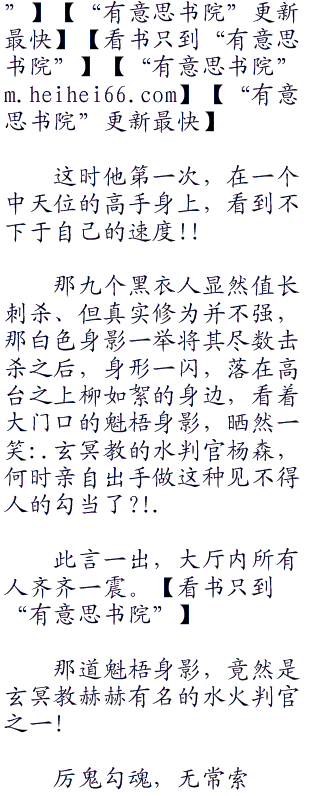 ”】【“有意思书院”更新
最快】【看书只到“有意思
书院”】【“有意思书院”
m.heihei66.com】【“有意
思书院”更新最快】
这时他第一次，在一个
中天位的高手身上，看到不
下于自己的速度!!
那九个黑衣人显然值长
刺杀、但真实修为并不强，
那白色身影一举将其尽数击
杀之后，身形一闪，落在高
台之上柳如絮的身边，看着
大门口的魁梧身影，晒然一
笑:.玄冥教的水判官杨森，
何时亲自出手做这种见不得
人的勾当了?!.
此言一出，大厅内所有
人齐齐一震。【看书只到
“有意思书院”】
那道魁梧身影，竟然是
玄冥教赫赫有名的水火判官
之一!
厉鬼勾魂，无常索